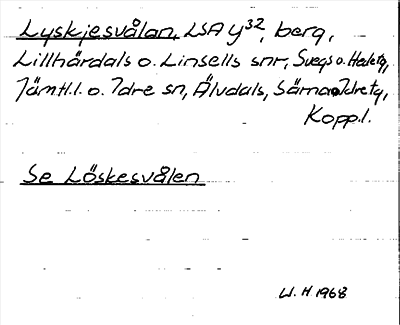 Lyskjesvålan, LSA y32, berg,
Lillhärdals o. Linsells snr, Svegs o. Hedetg,
Jämtl.l. o. Idre sn, Älvdals, Särna o Idretg,
Kopp.l.
Se Löskesvålen
W. H 1968